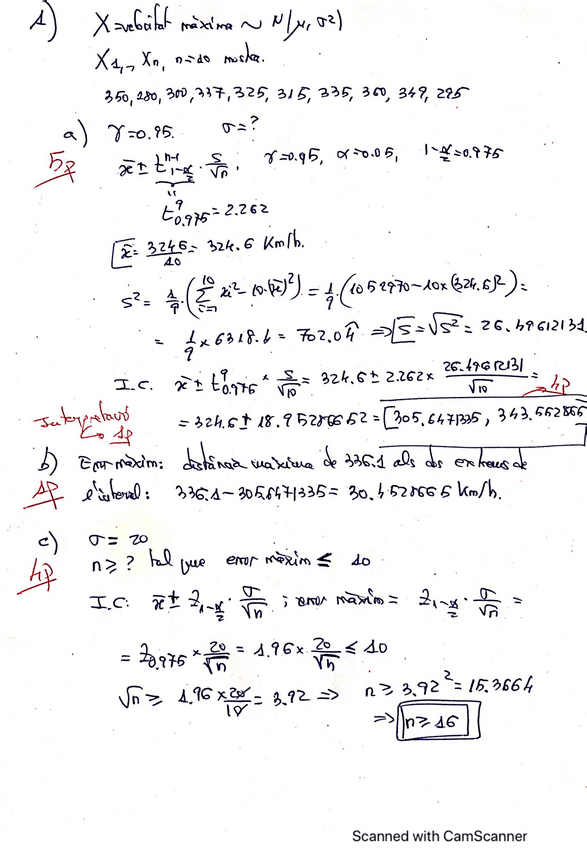 1) X=velocitat màxima ~ N(μ, σ²)
X₁,.., Xn, n=10 mostra.
350, 280, 300, 337, 325, 315, 335, 360, 349, 295
a) γ=0.95. σ=?
5p
x̄ ± t^{n-1}_{1-α/2} · S/√n, γ=0.95, α=0.05, 1-α/2=0.975
t^9_{0.975} = 2.262
x̄ = 3246/10 = 324.6 Km/h.
S² = 1/9 · (Σ_{i=1}^{10} xi² - 10·(x̄)²) = 1/9 · (1059970 - 10×(324.6)²) =
= 1/9 × 6318.4 = 702.04 ⇒ S = √S² = 26.49612131
I.C. x̄ ± t^9_{0.975} × S/√10 = 324.6 ± 2.262 × 26.49612131/√10 =
4p
Interpretació
↳ 1p
= 324.6 ± 18.95286652 = [305.6471335, 343.552866
b) Error màxim: distància màxima de 336.1 als dos extrems de
1p
l'interval: 336.1 - 305.6471335 = 30.4528665 Km/h.
c) σ = 20
4p
n ≥ ? tal que error màxim ≤ 10
I.C: x̄ ± z_{1-α/2} · σ/√n ; error màxim = z_{1-α/2} · σ/√n =
= z_{0.975} × 20/√n = 1.96 × 20/√n ≤ 10
√n ≥ 1.96 × 20/10 = 3.92 ⇒ n ≥ 3.92² = 15.3664
⇒ n ≥ 16
Scanned with CamScanner